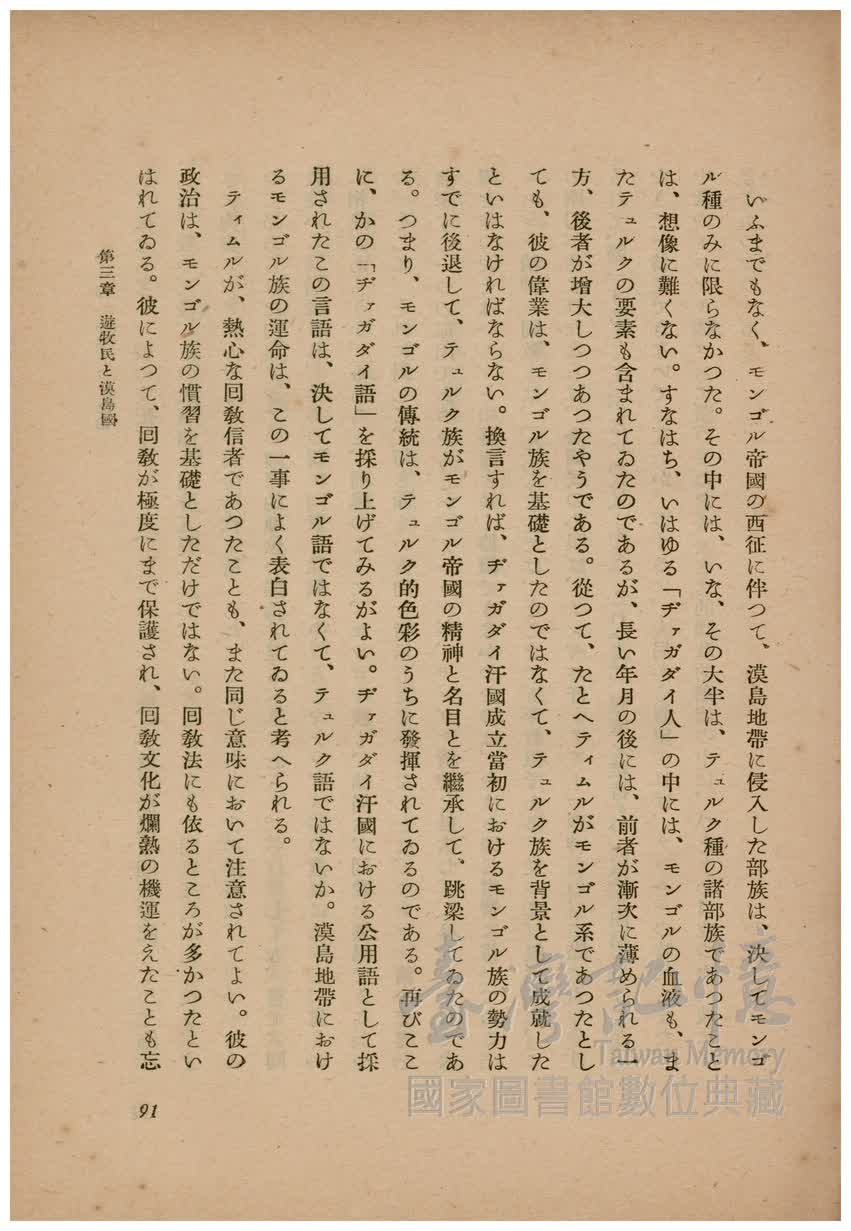 いふまでもなく、モンゴル帝國の西征に伴つて、漠島地帶に侵入した部族は、決してモンゴ
ル種のみに限らなかつた。その中には、いな、その大半は、テュルク種の諸部族であつたこと
は、想像に難くない。すなはち、いはゆる「ヂァガダイ人」の中には、モンゴルの血液も、ま
たテュルクの要素も含まれてゐたのであるが、長い年月の後には、前者が漸次に薄められる一
方、後者が增大しつつあつたやうである。從つて、たとへティムルがモンゴル系であつたとし
ても、彼の偉業は、モンゴル族を基礎としたのではなくて、テュルク族を背景として成就した
といはなければならない。換言すれば、ヂァガダイ汗國成立當初におけるモンゴル族の勢力は
すでに後退して、テュルク族がモンゴル帝國の精神と名目とを繼承して、跳梁してゐたのであ
る。つまり、モンゴルの傳統は、テュルク的色彩のうちに發揮されてゐるのである。再びここ
に、かの「ヂァガダイ語」を採り上げてみるがよい。ヂァガダイ汗國における公用語として採
用されたこの言語は、決してモンゴル語ではなくて、テュルク語ではないか。漠島地帶におけ
るモンゴル族の運命は、この一事によく表白されてゐると考へられる。
ティムルが、熱心な回敎信者であつたことも、また同じ意味において注意されてよい。彼の
政治は、モンゴル族の慣習を基礎としただけではない。回敎法にも依るところが多かつたとい
はれてゐる。彼によつて、回敎が極度にまで保護され、回敎文化が爛熟の機運をえたことも忘
第三章 遊牧民と漠島國
91
臺灣記憶
Taiwan Memory
國家圖書館數位典藏